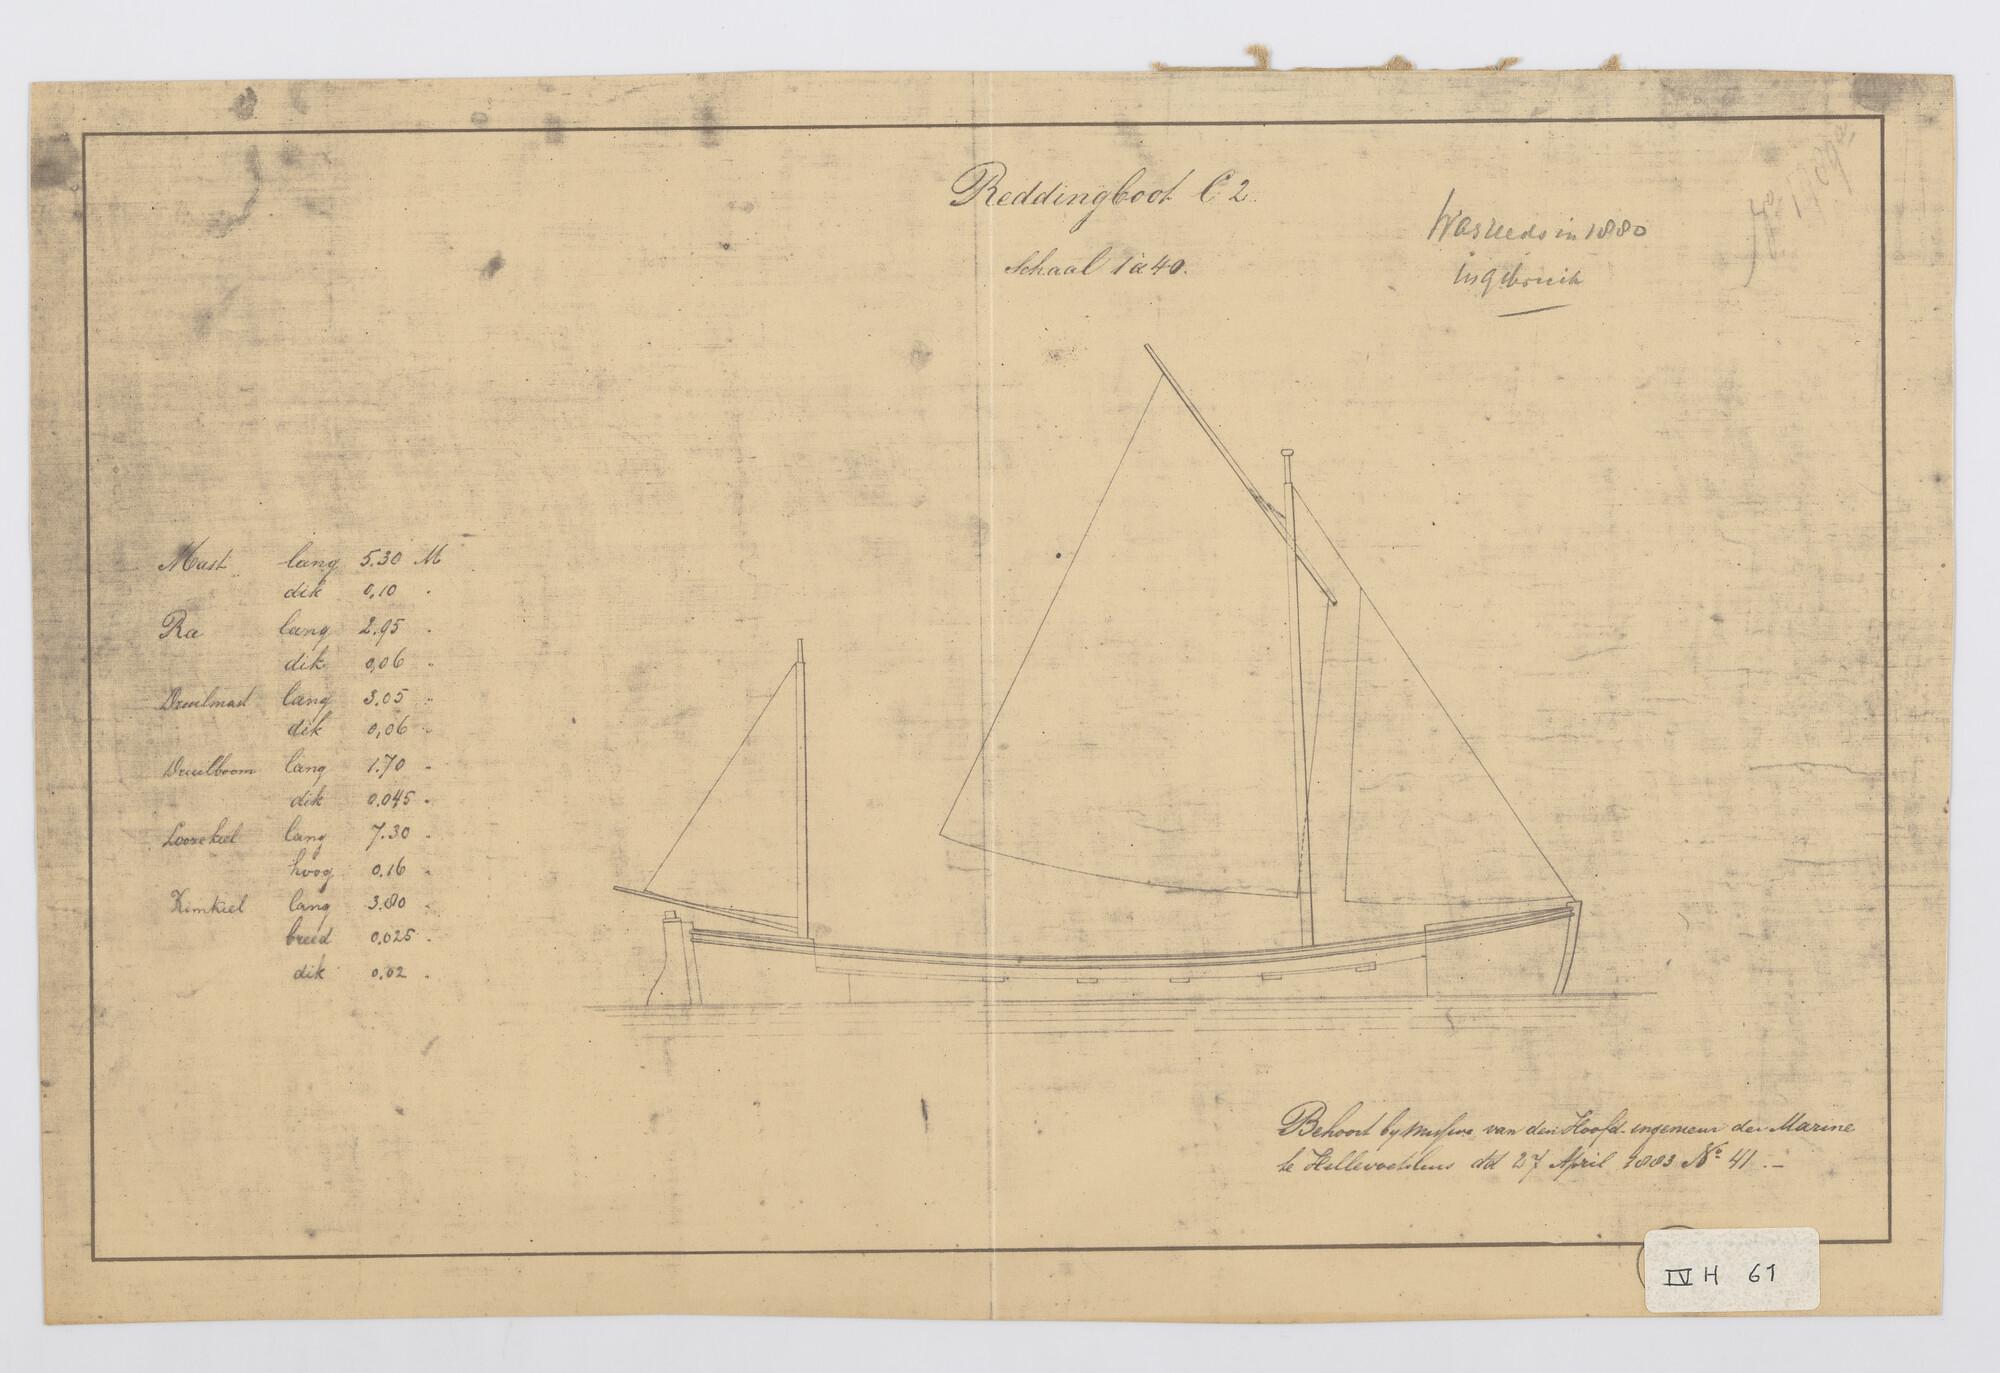 Reddingboot C 2.
Schaal 1 à 40.
Was reeds in 1880
in gebruik
Mast lang 5.30 M
dik 0,10 "
Ra lang 2.95 "
dik 0,06 "
Druilmast lang 3.05 "
dik 0,06 "
Druilboom lang 1.70 "
dik 0.045 "
Loozekiel lang 7.30 "
hoog 0.16 "
Kimkiel lang 3.80 "
breed 0.025 "
dik 0.02 "
Behoort by missive van den Hoofd-ingenieur der Marine
te Hellevoetsluis dd 27 April 1883 No 41.-
IV H 61